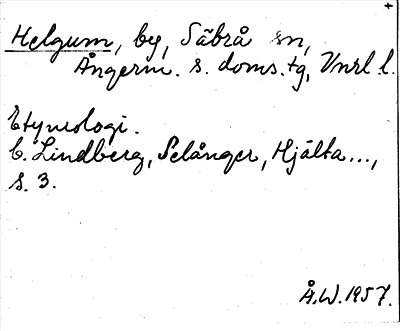 Helgum, by, Säbrå sn,
Ångerm. s. doms.tg, Vnrl l.
Etymologi.
C. Lindberg, Selånger, Hjälta...,
s. 3.
Å.W. 1957.